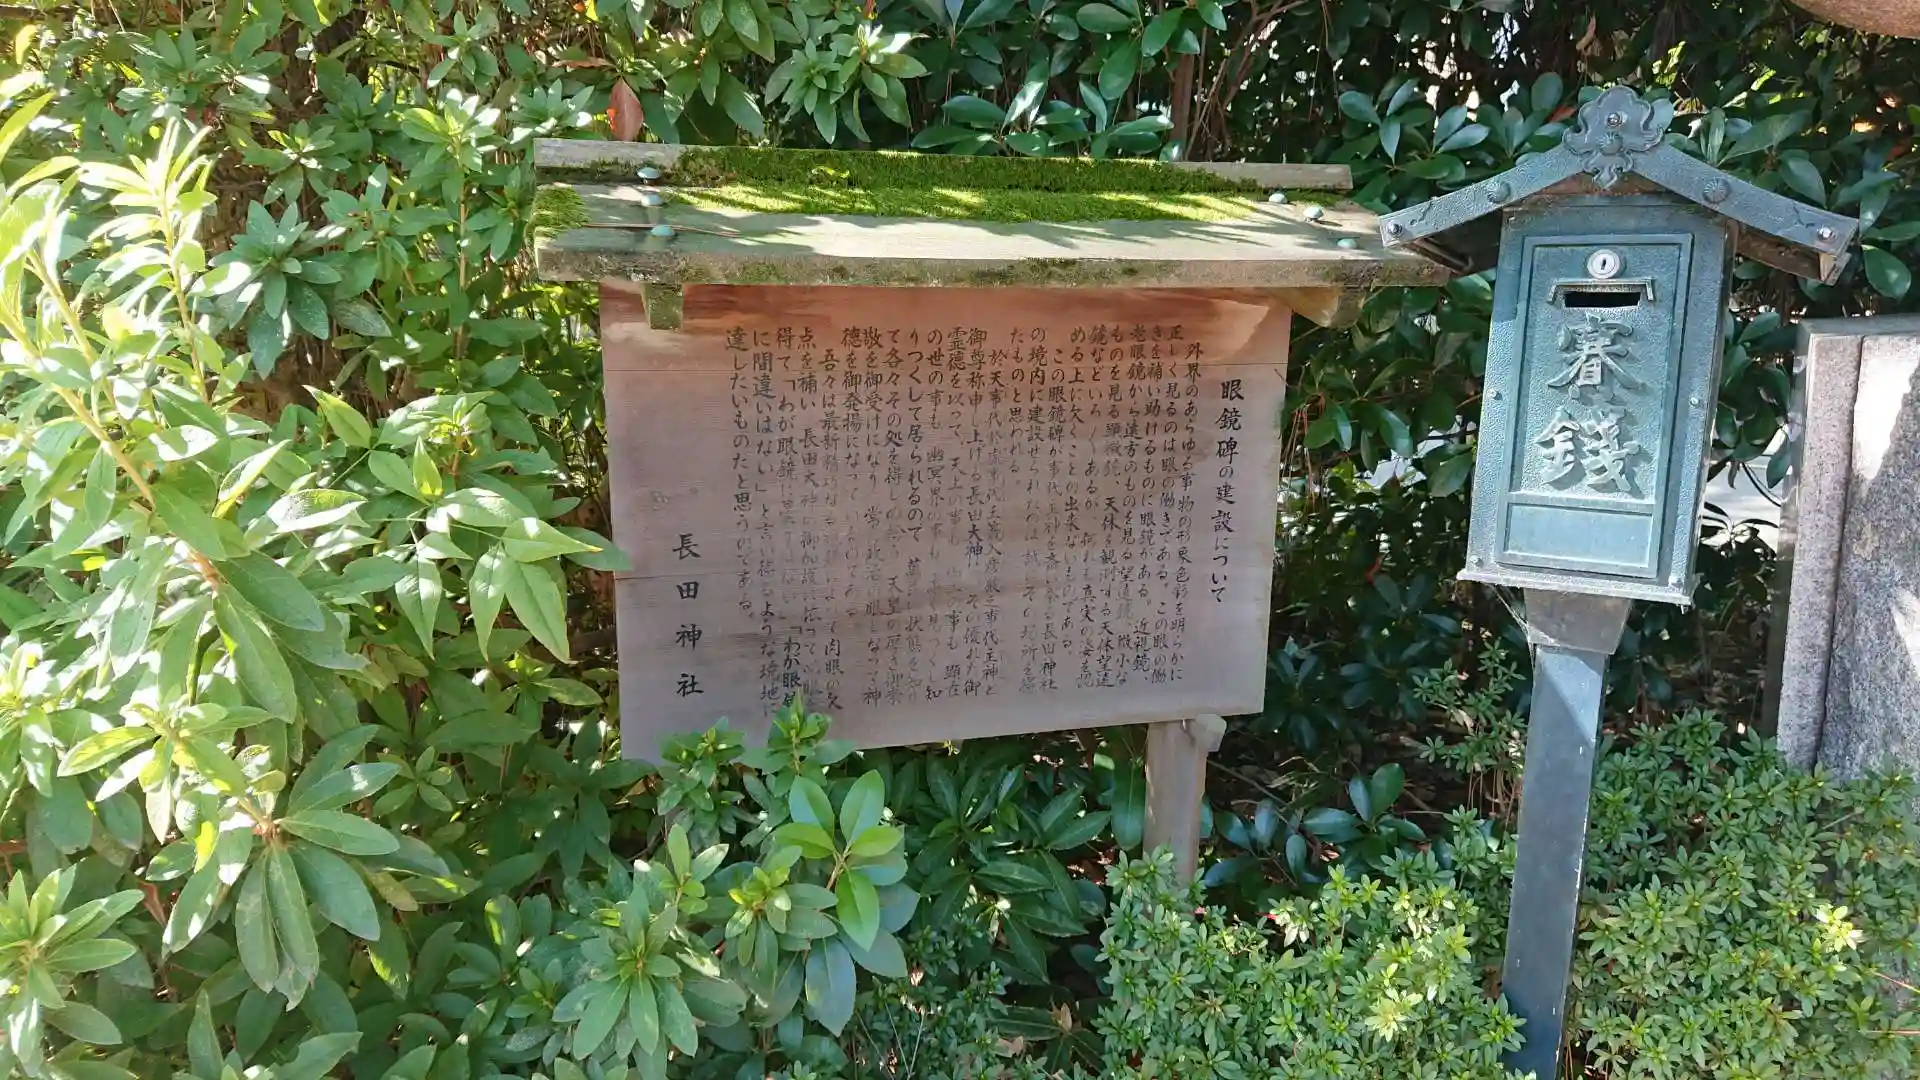 眼鏡碑の建設について
外界のあらゆる事物の形象色彩を明らかに
正しく見るのは眼の働きである。この眼の働
きを補い助けるものに眼鏡がある。近視鏡、
老眼鏡から遠方のものを見る望遠鏡、微小な
ものを見る顕微鏡、天体を観測する天体望遠
鏡などいろ〱あるが、何れも真実の姿を
める上に欠くことの出来ないものである。
この眼鏡碑が事代主神を る長田神社
の境内に建設せられたのは誠に その 所を得
たものと思われる。
於天事代 代主 入彦厳之事代主神と
御尊称申し上げる長田大神は、その優れた御
霊徳を以って、天上の事も、 事も、顕在
の世の事も、幽冥界の事も 見つくし知
りつくして居られるので、 状態を知り
て各々その処を得しめ 、天皇の厚き御崇
敬を御受けになり、常に政治の眼となって神
徳を御発揚になっているのである。
吾々は最新精巧な によって肉眼の欠
点を補い、長田大神の御加護に依って
得て「わが眼鏡に ない」「わが眼鏡
に間違いはない」と言い得るような境地に
達したいものだと思うのである。
長田神社
賽銭